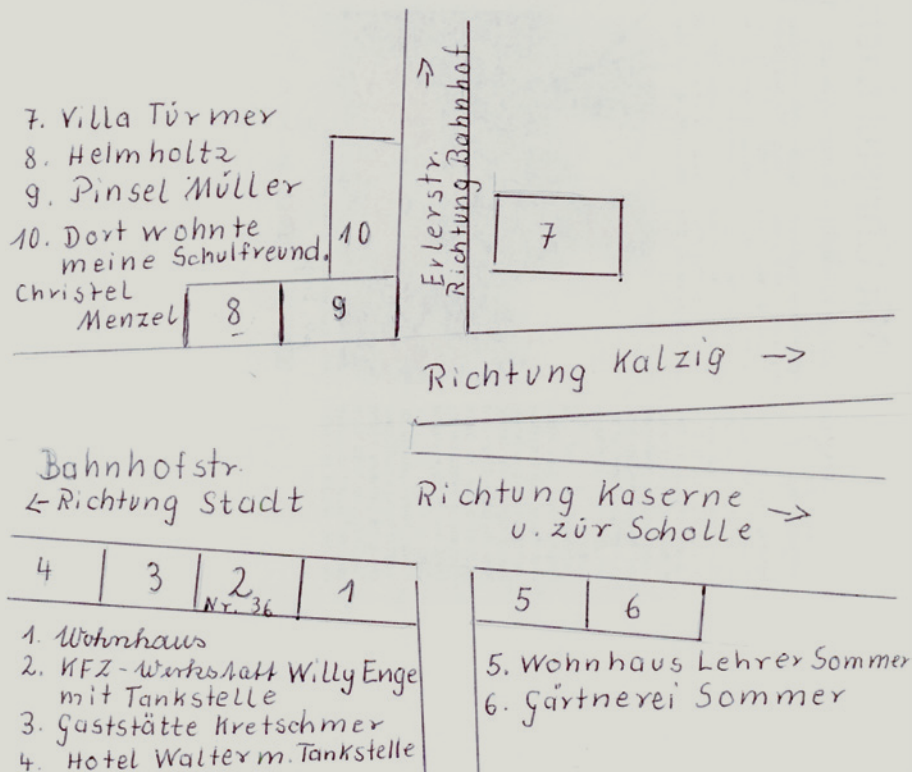 7. Villa Türmer
8. Helmholtz
9. Pinsel Müller
10. Dort wohnte
meine Schulfreund.
Christel
Menzel
8
9
10
→
Erlerstr.
Richtung Bahnhof
7
Richtung Kalzig →
Bahnhofstr.
← Richtung Stadt
Richtung Kaserne
u. zür Scholle →
4
3
2
Nr. 36
1
5
6
1. Wohnhaus
2. KFZ-Werkstatt Willy Enge
mit Tankstelle
3. Gaststätte Kretschmer
4. Hotel Walter m. Tankstelle
5. Wohnhaus Lehrer Sommer
6. Gärtnerei Sommer